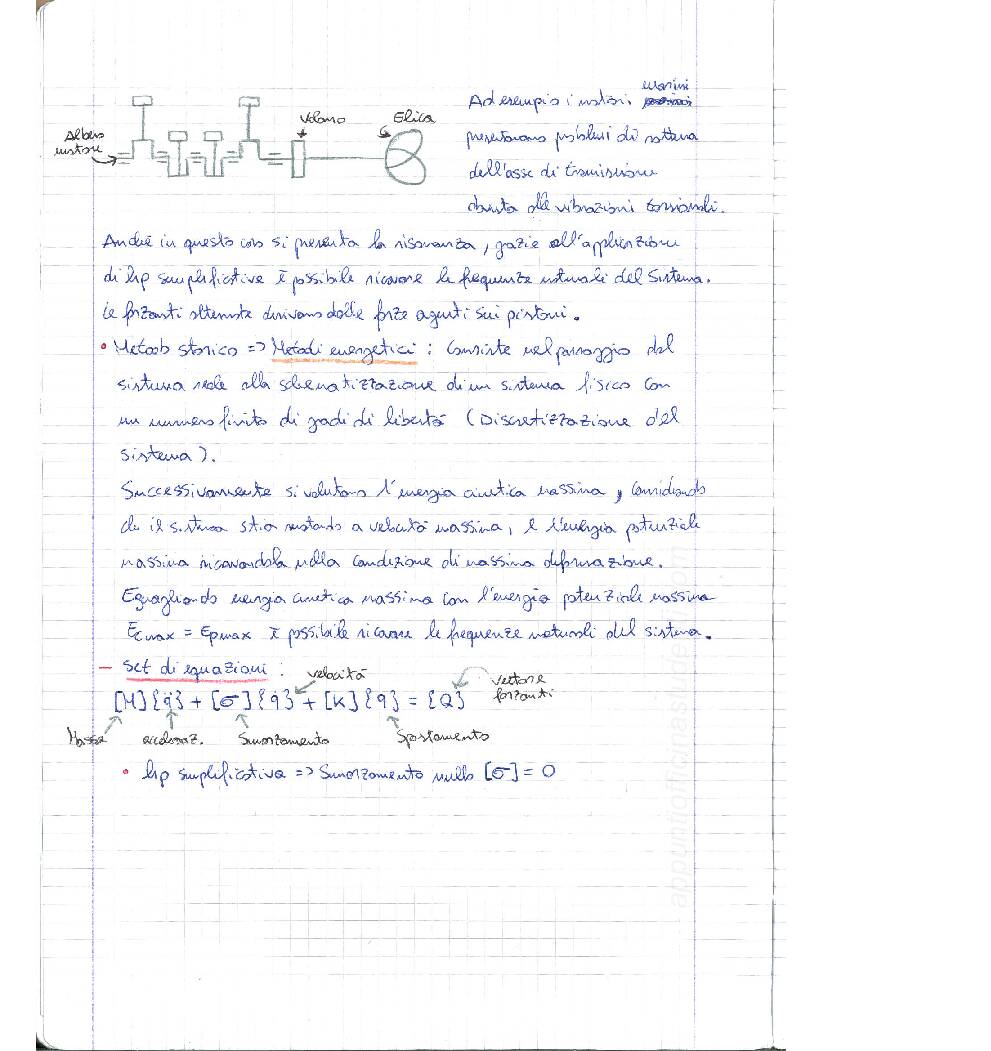 Albero
motore
Volano
Elica
Ad esempio i motori marini
presentavano problemi di rottura
dell'asse di trasmissione
dovuta alle vibrazioni torsionali.
Anche in questo caso si presenta la risonanza, grazie all'applicazione
di hp semplificative è possibile ricavare le frequenze naturali del sistema.
Le forzanti alternate derivano dalle forze agenti sui pistoni.
• Metodo storico => Metodi energetici : Consiste nel passaggio dal
sistema reale alla schematizzazione di un sistema fisico con
un numero finito di gradi di libertà (Discretizzazione del
sistema).
Successivamente si valutano l'energia cinetica massima, considerando
che il sistema stia ruotando a velocità massima, e l'energia potenziale
massima ricavandola nella condizione di massima deformazione.
Eguagliando energia cinetica massima con l'energia potenziale massima
Ecmax = Epmax è possibile ricavare le frequenze naturali del sistema.
— Set di equazioni :
velocità
vettore
forzanti
[M]{q̈} + [σ]{q̇} + [K]{q} = {Q}
Massa acceleraz. Smorzamento Spostamento
• hp semplificativa => Smorzamento nullo [σ] = 0